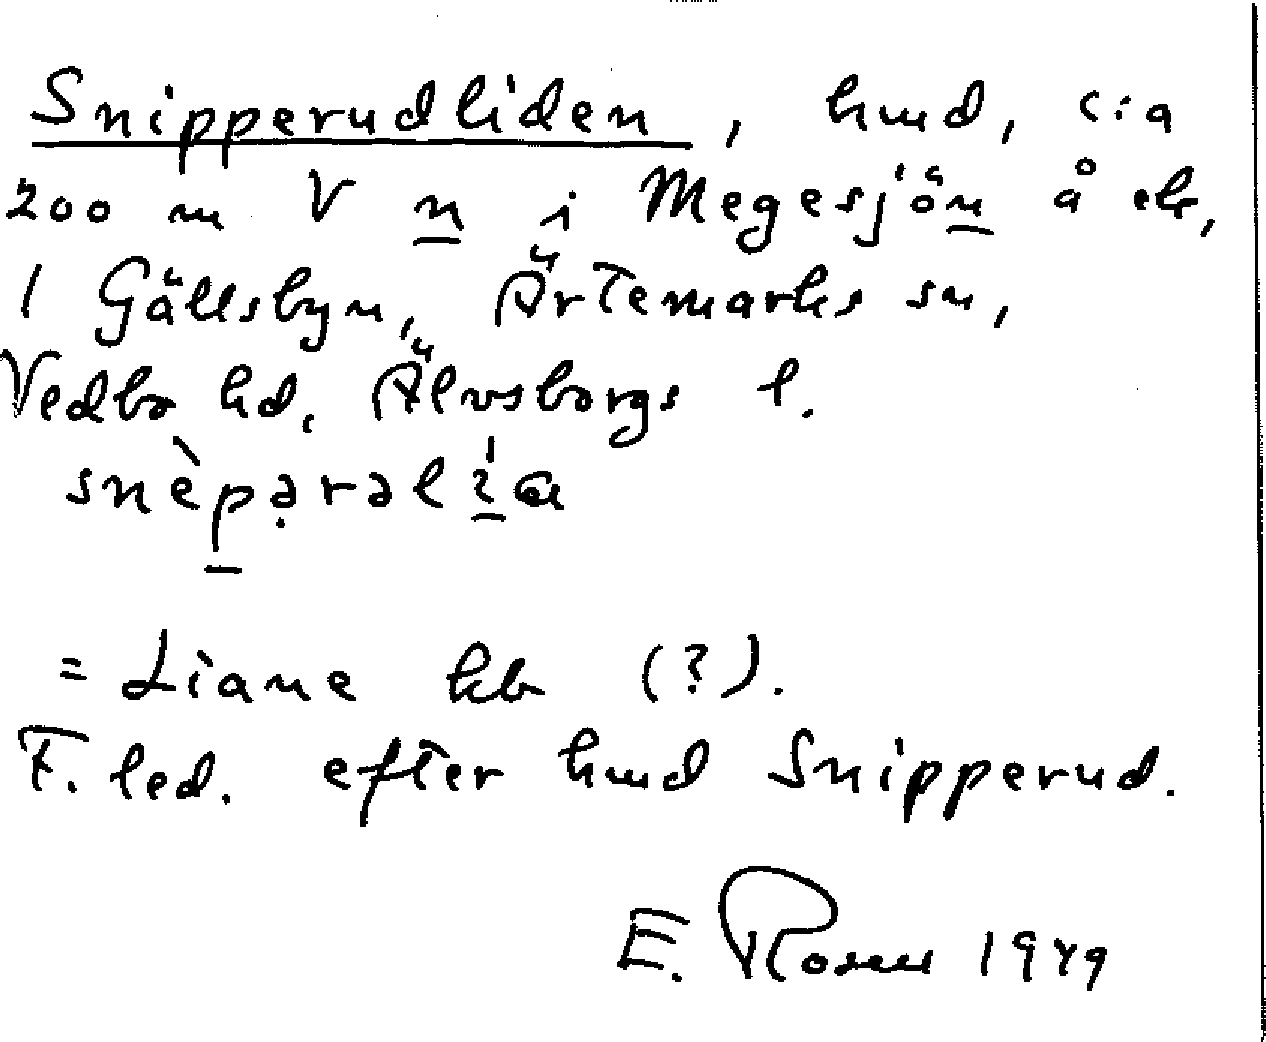 Snipperudliden, hmd, c:a
200 m V n i Megesjön å ek,
i Gällsbyn, Ärtemarks sn,
Vedbo hd, Älvsborgs l.
= Liane kb (?).
F. led. efter hmd Snipperud.
E. Rosen 1949